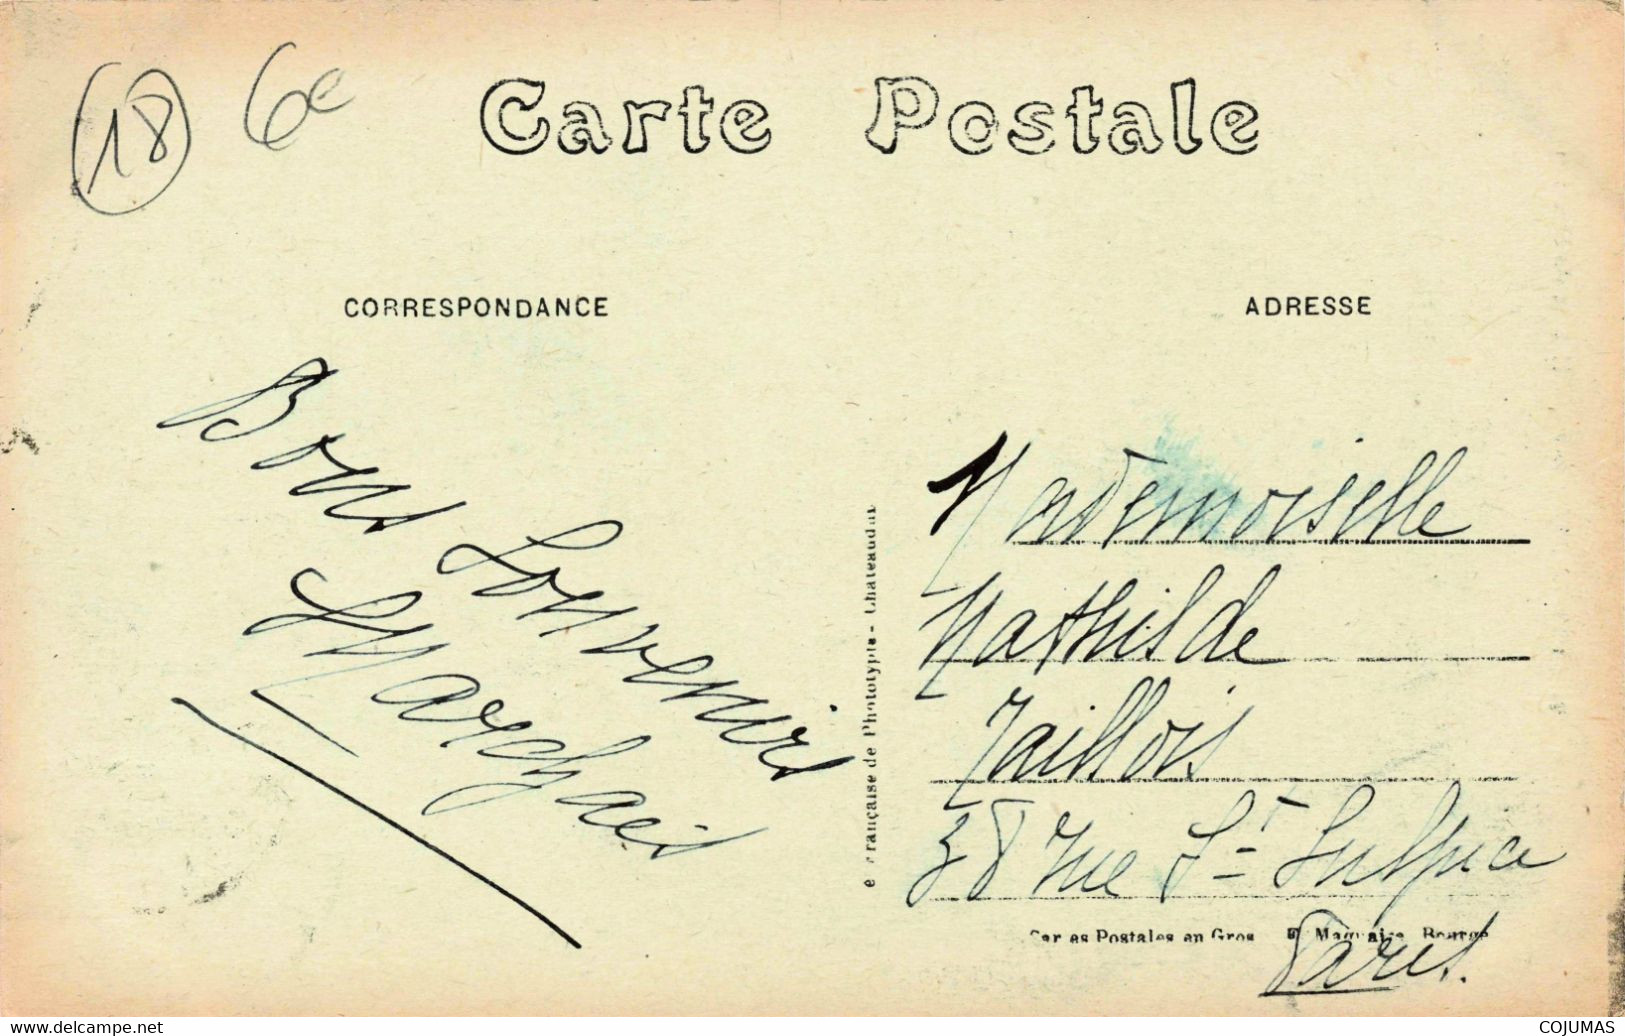 18 6e
Carte Postale
CORRESPONDANCE
ADRESSE
Bons Souvenirs
Mademoiselle
Mathilde
Taillois
38 rue St Sulpice
Paris.
e Française de Phototypie - Chateaudun
Car es Postales en Gros E. Maquaire Bourge
www.delcampe.net
COJUMAS